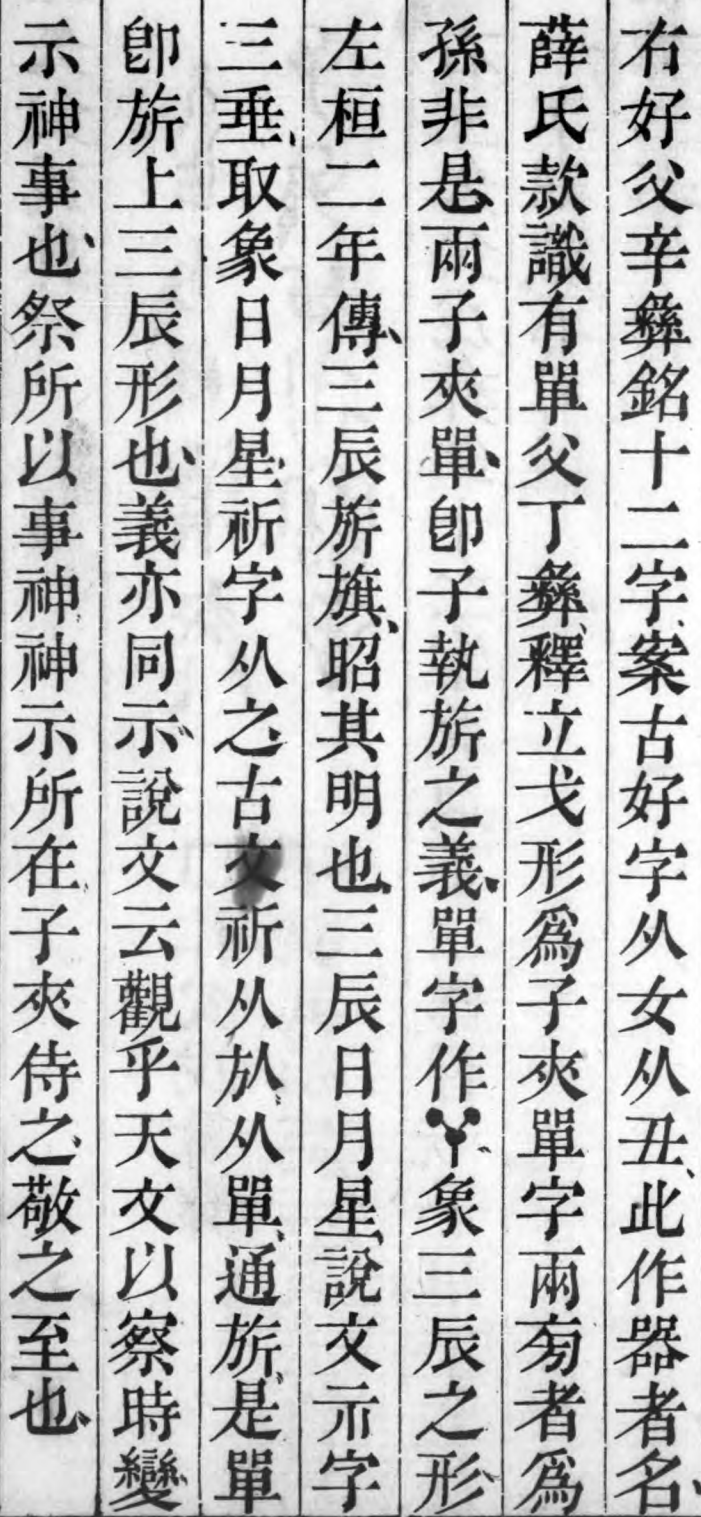 右好父辛彝銘十二字案古好字从女从丑、此作器者名、
薛氏款識有單父丁彝、釋立戈形爲子夾單字兩旁者爲
孫非是、兩子夾單、卽子執旂之義、單字作、象三辰之形、
左桓二年傳、三辰旂旗、昭其明也、三辰日月星、說文示字
三垂、取象日月星、祈字从之、古文祈从㫃、从單、通旂、是單
卽旂上三辰形也、義亦同示、說文云觀乎天文以察時變
示神事也、祭所以事神、神示所在、子夾侍之、敬之至也、